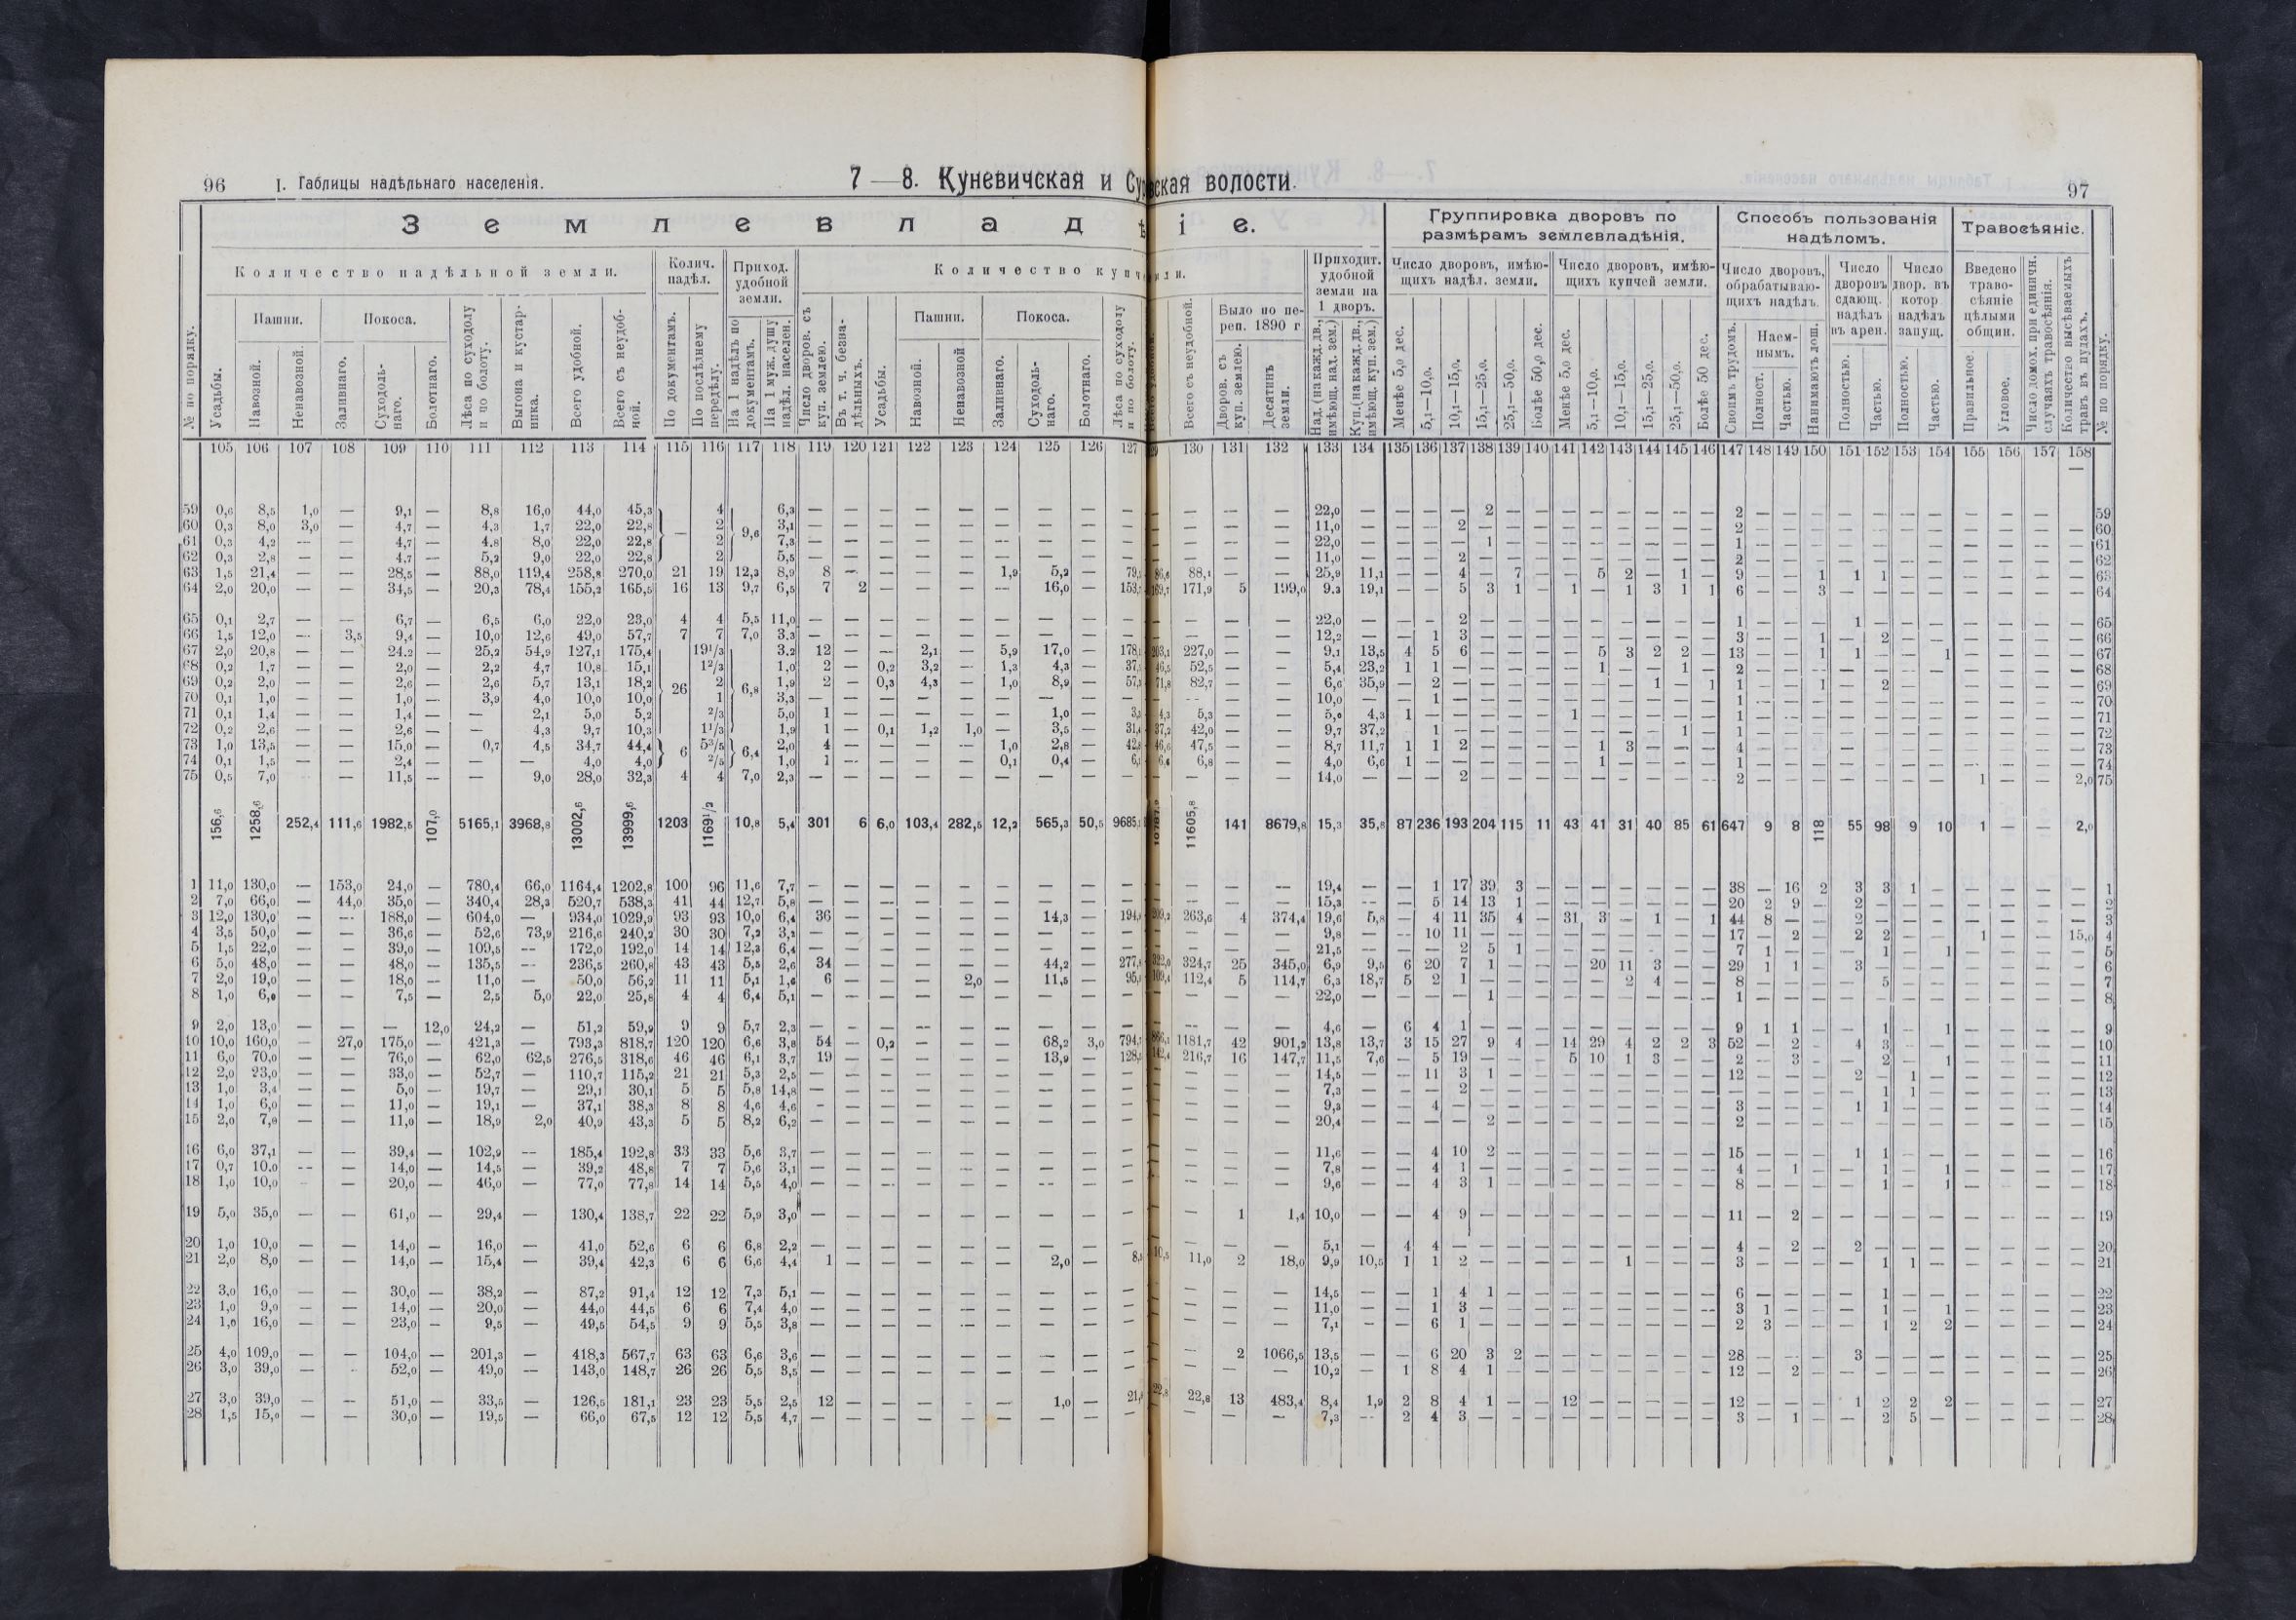 96 I. Таблицы надѣльнаго населенія. 7—8. Куневичская и Су ская волости. 97
З е м л е в л а д ѣ і е.
Группировка дворовъ по размѣрамъ землевладѣнія.
Способъ пользованія надѣломъ.
Травосѣяніе.
Количество надѣльной земли.
Колич. надѣл.
Приход. удобной земли.
Количество купч ли.
Приходит. удобной земли на 1 дворъ.
Число дворовъ, имѣющихъ надѣл. земли.
Число дворовъ, имѣющихъ купчей земли.
Число дворовъ, обрабатывающихъ надѣлъ.
Число дворовъ сдающ. надѣлъ въ арен.
Число двор. въ котор. надѣлъ запущ.
Введено травосѣяніе цѣлыми общин.
№ по порядку.
Усадьбы.
Пашни.
Навозной.
Ненавозной.
Покоса.
Заливнаго.
Суходольнаго.
Болотнаго.
Лѣса по суходолу и по болоту.
Выгона и кустарника.
Всего удобной.
Всего съ неудобной.
По документамъ.
По послѣднему передѣлу.
На 1 надѣлъ по документамъ.
На 1 муж. душу надѣл. населен.
Число дворов. съ куп. землею.
Въ т. ч. безнадѣльныхъ.
Усадьбы.
Пашни.
Навозной.
Ненавозной
Покоса.
Заливнаго.
Суходольнаго.
Болотнаго.
Лѣса по суходолу и по болоту.
Всего съ неудобной.
Было по переп. 1890 г
Дворов. съ куп. землею.
Десятинъ земли.
Над. (на кажд. дв., имѣющ. над. зем.)
Куп. (на кажд. дв., имѣющ. куп. зем.)
Менѣе 5,0 дес.
5,1—10,0.
10,1—15,0.
15,1—25,0.
25,1—50,0.
Болѣе 50,0 дес.
Менѣе 5,0 дес.
5,1—10,0.
10,1—15,0.
15,1—25,0.
25,1—50,0.
Болѣе 50 дес.
Своимъ трудомъ.
Наемнымъ.
Полност.
Частью.
Нанимаютъ лош.
Полностью.
Частью.
Полностью.
Частью.
Правильное.
Угловое.
Число домох. при единичн. случаяхъ травосѣянія.
Количество высѣваемыхъ травъ въ пудахъ.
№ по порядку.
105 106 107 108 109 110 111 112 113 114 115 116 117 118 119 120 121 122 123 124 125 126 127 130 131 132 133 134 135 136 137 138 139 140 141 142 143 144 145 146 147 148 149 150 151 152 153 154 155 156 157 158
59 0,6 8,5 1,0 — 9,1 — 8,8 16,0 44,0 45,3 4 6,3 — — — — — — — — — — — — 22,0 — — — — 2 — — — — — — — — 2 — — — — — — — — — — — 59
60 0,3 8,0 3,0 — 4,7 — 4,3 1,7 22,0 22,8 — 2 9,6 3,1 — — — — — — — — — — — — 11,0 — — — 2 — — — — — — — — — 2 — — — — — — — — — — — 60
61 0,3 4,2 — — 4,7 — 4,8 8,0 22,0 22,8 2 7,3 — — — — — — — — — — — — 22,0 — — — — 1 — — — — — — — — 1 — — — — — — — — — — — 61
62 0,3 2,8 — — 4,7 — 5,2 9,0 22,0 22,8 2 5,5 — — — — — — — — — — — — 11,0 — — — 2 — — — — — — — — — 2 — — — — — — — — — — — 62
63 1,5 21,4 — — 28,5 — 88,0 119,4 258,8 270,0 21 19 12,3 8,9 8 — — — — 1,9 5,2 — 88,1 — — 25,9 11,1 — — 4 — 7 — — 5 2 — 1 — 9 — — 1 1 1 — — — — — — 63
64 2,0 20,0 — — 34,5 — 20,3 78,4 155,2 165,5 16 13 9,7 6,5 7 2 — — — — 16,0 — 171,9 5 199,0 9,3 19,1 — — 5 3 1 — 1 — 1 3 1 1 6 — — 3 — — — — — — — — 64
65 0,1 2,7 — — 6,7 — 6,5 6,0 22,0 23,0 4 4 5,5 11,0 — — — — — — — — — — — — 22,0 — — — 2 — — — — — — — — — 1 — — — 1 — — — — — — — 65
66 1,5 12,0 — 3,5 9,4 — 10,0 12,6 49,0 57,7 7 7 7,0 3,3 — — — — — — — — — — — — 12,2 — — 1 3 — — — — — — — — — 3 — — 1 — 2 — — — — — — 66
67 2,0 20,8 — — 24,2 — 25,2 54,9 127,1 175,4 19 1/3 3,2 12 — — 2,1 — 5,9 17,0 — 227,0 — — 9,1 13,5 4 5 6 — — — — 5 3 2 2 — 13 — — 1 1 — — 1 — — — — 67
68 0,2 1,7 — — 2,0 — 2,2 4,7 10,8 15,1 1 2/3 1,0 2 — 0,2 3,2 — 1,3 4,3 — 52,5 — — 5,4 23,2 1 1 — — — — — 1 — — 1 — 2 — — — — — — — — — — — 68
69 0,2 2,0 — — 2,6 — 2,6 5,7 13,1 18,2 26 2 6,8 1,9 2 — 0,3 4,3 — 1,0 8,9 — 82,7 — — 6,6 35,9 — 2 — — — — — — — 1 — 1 1 — — 1 — 2 — — — — — — 69
70 0,1 1,0 — — 1,0 — 3,9 4,0 10,0 10,0 1 3,3 — — — — — — — — — — — — 10,0 — — 1 — — — — — — — — — — 1 — — — — — — — — — — — 70
71 0,1 1,4 — — 1,4 — — 2,1 5,0 5,2 2/3 5,0 1 — — — — — 1,0 — 5,3 — — 5,0 4,3 1 — — — — — 1 — — — — — 1 — — — — — — — — — — — 71
72 0,2 2,6 — — 2,6 — — 4,3 9,7 10,3 1 1/3 1,9 1 — 0,1 1,2 1,0 — 3,5 — 42,0 — — 9,7 37,2 — 1 — — — — — — — — 1 — 1 — — — — — — — — — — — 72
73 1,0 13,5 — — 15,0 — 0,7 4,5 34,7 44,4 6 5 3/5 6,4 2,0 4 — — — — 1,0 2,8 — 47,5 — — 8,7 11,7 1 1 2 — — — — 1 3 — — — 4 — — — — — — — — — — — 73
74 0,1 1,5 — — 2,4 — — — 4,0 4,0 2/5 1,0 1 — — — — 0,1 0,4 — 6,8 — — 4,0 6,6 1 — — — — — — 1 — — — — 1 — — — — — — — — — — — 74
75 0,5 7,0 — — 11,5 — — 9,0 28,0 32,3 4 4 7,0 2,3 — — — — — — — — — — — — 14,0 — — — 2 — — — — — — — — — 2 — — — — — — — 1 — — 2,0 75
156,6 1258,6 252,4 111,6 1982,5 107,0 5165,1 3968,8 13002,6 13999,6 1203 1169 1/2 10,8 5,4 301 6 6,0 103,4 282,5 12,2 565,3 50,5 11605,8 141 8679,8 15,3 35,8 87 236 193 204 115 11 43 41 31 40 85 61 647 9 8 118 55 98 9 10 1 — — 2,0
1 11,0 130,0 — 153,0 24,0 — 780,4 66,0 1164,4 1202,8 100 96 11,6 7,7 — — — — — — — — — — — — 19,4 — — 1 17 39 3 — — — — — — — 38 — 16 2 3 3 1 — — — — — 1
2 7,0 66,0 — 44,0 35,0 — 340,4 28,3 520,7 538,3 41 44 12,7 5,8 — — — — — — — — — — — — 15,3 — — 5 14 13 1 — — — — — — — 20 2 9 — 2 — — — — — — — 2
3 12,0 130,0 — — 188,0 — 604,0 — 934,0 1029,9 93 93 10,0 6,4 36 — — — — — 14,3 — 263,6 4 374,4 19,6 5,8 — 4 11 35 4 — 31 3 — 1 — 1 44 8 — — 2 — — — — — — — 3
4 3,5 50,0 — — 36,6 — 52,6 73,9 216,6 240,2 30 30 7,2 3,2 — — — — — — — — — — — — 9,8 — — 10 11 — — — — — — — — — 17 — 2 — 2 2 — — 1 — — 15,0 4
5 1,5 22,0 — — 39,0 — 109,5 — 172,0 192,0 14 14 12,3 6,4 — — — — — — — — — — — — 21,5 — — — 2 5 1 — — — — — — — 7 1 — — — 1 — 1 — — — — 5
6 5,0 48,0 — — 48,0 — 135,5 — 236,5 260,8 43 43 5,5 2,6 34 — — — — — 44,2 — 324,7 25 345,0 6,9 9,5 6 20 7 1 — — — 20 11 3 — — 29 1 1 — 3 — — — — — — — 6
7 2,0 19,0 — — 18,0 — 11,0 — 50,0 56,2 11 11 5,1 1,6 6 — — — 2,0 — 11,5 — 112,4 5 114,7 6,3 18,7 5 2 1 — — — — — 2 4 — — 8 — — — — 5 — — — — — — 7
8 1,0 6,0 — — 7,5 — 2,5 5,0 22,0 25,8 4 4 6,4 5,1 — — — — — — — — — — — — 22,0 — — — — 1 — — — — — — — — 1 — — — — — — — — — — — 8
9 2,0 13,0 — — — 12,0 24,2 — 51,2 59,9 9 9 5,7 2,3 — — — — — — — — — — — — 4,6 — 6 4 1 — — — — — — — — — 9 1 1 — — 1 — 1 — — — — 9
10 10,0 160,0 — 27,0 175,0 — 421,3 — 793,3 818,7 120 120 6,6 3,8 54 — 0,2 — — — 68,2 3,0 1181,7 42 901,2 13,8 13,7 3 15 27 9 4 — 14 29 4 2 2 3 52 — 2 — 4 3 — — — — — — 10
11 6,0 70,0 — — 76,0 — 62,0 62,5 276,5 318,6 46 46 6,1 3,7 19 — — — — — 13,9 — 216,7 16 147,7 11,5 7,6 — 5 19 — — — 5 10 1 3 — — 2 — 3 — — 2 — 1 — — — — 11
12 2,0 23,0 — — 33,0 — 52,7 — 110,7 115,2 21 21 5,3 2,5 — — — — — — — — — — — — 14,5 — — 11 3 1 — — — — — — — — 12 — — — 2 — 1 — — — — — 12
13 1,0 3,4 — — 5,0 — 19,7 — 29,1 30,1 5 5 5,8 14,8 — — — — — — — — — — — — 7,3 — — — 2 — — — — — — — — — — — — — — 1 1 — — — — — 13
14 1,0 6,0 — — 11,0 — 19,1 — 37,1 38,3 8 8 4,6 4,6 — — — — — — — — — — — — 9,3 — — 4 — — — — — — — — — — 3 — — — 1 1 — — — — — — 14
15 2,0 7,0 — — 11,0 — 18,9 2,0 40,9 43,3 5 5 8,2 6,2 — — — — — — — — — — — — 20,4 — — — — 2 — — — — — — — — 2 — — — — — — — — — — — 15
16 6,0 37,1 — — 39,4 — 102,9 — 185,4 192,8 33 33 5,6 3,7 — — — — — — — — — — — — 11,6 — — 4 10 2 — — — — — — — — 15 — — — 1 1 — — — — — — 16
17 0,7 10,0 — — 14,0 — 14,5 — 39,2 48,8 7 7 5,6 3,1 — — — — — — — — — — — — 7,8 — — 4 1 — — — — — — — — — 4 — 1 — — 1 — 1 — — — — 17
18 1,0 10,0 — — 20,0 — 46,0 — 77,0 77,8 14 14 5,5 4,0 — — — — — — — — — — — — 9,6 — — 4 3 1 — — — — — — — — 8 — — — — 1 — 1 — — — — 18
19 5,0 35,0 — — 61,0 — 29,4 — 130,4 138,7 22 22 5,9 3,0 — — — — — — — — — — 1 1,4 10,0 — — 4 9 — — — — — — — — — 11 — 2 — — — — — — — — — 19
20 1,0 10,0 — — 14,0 — 16,0 — 41,0 52,6 6 6 6,8 2,2 — — — — — — — — — — — — 5,1 — 4 4 — — — — — — — — — — 4 — 2 — 2 — — — — — — — 20
21 2,0 8,0 — — 14,0 — 15,4 — 39,4 42,3 6 6 6,6 4,4 1 — — — — — 2,0 — 11,0 2 18,0 9,9 10,5 1 1 2 — — — — — 1 — — — 3 — — — — 1 1 — — — — — 21
22 3,0 16,0 — — 30,0 — 38,2 — 87,2 91,4 12 12 7,3 5,1 — — — — — — — — — — — — 14,5 — — 1 4 1 — — — — — — — — 6 — — — — 1 — — — — — — 22
23 1,0 9,0 — — 14,0 — 20,0 — 44,0 44,5 6 6 7,4 4,0 — — — — — — — — — — — — 11,0 — — 1 3 — — — — — — — — — 3 1 — — — 1 — 1 — — — — 23
24 1,0 16,0 — — 23,0 — 9,5 — 49,5 54,5 9 9 5,5 3,8 — — — — — — — — — — — — 7,1 — — 6 1 — — — — — — — — — 2 3 — — — 1 2 2 — — — — 24
25 4,0 109,0 — — 104,0 — 201,3 — 418,3 567,7 63 63 6,6 3,6 — — — — — — — — — — 2 1066,5 13,5 — — 6 20 3 2 — — — — — — — 28 — — — 3 — — — — — — — 25
26 3,0 39,0 — — 52,0 — 49,0 — 143,0 148,7 26 26 5,5 3,5 — — — — — — — — — — — — 10,2 — 1 8 4 1 — — — — — — — — 12 — 2 — — — — — — — — — 26
27 3,0 39,0 — — 51,0 — 33,5 — 126,5 181,1 23 23 5,5 2,5 12 — — — — — 1,0 — 22,8 13 483,4 8,4 1,9 2 8 4 1 — — 12 — — — — — 12 — — — 1 2 2 2 — — — — 27
28 1,5 15,0 — — 30,0 — 19,5 — 66,0 67,5 12 12 5,5 4,7 — — — — — — — — — — — — 7,3 — 2 4 3 — — — — — — — — — 3 — 1 — — 2 5 — — — — — 28